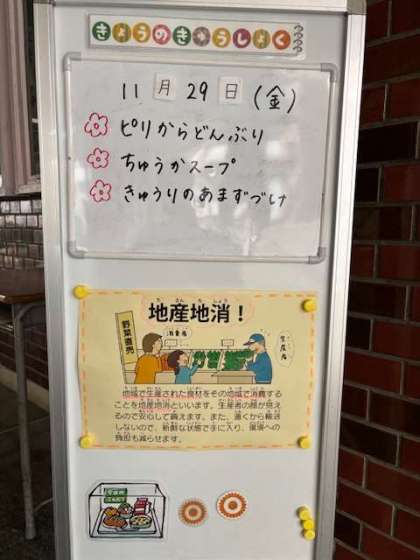 きょうのきゅうしょく
11月29日(金)
ピリからどんぶり
ちゅうかスープ
きゅうりのあまずづけ
地産地消!
野菜直売
消費者
生産者
地域で生産された食材をその地域で消費する
ことを地産地消といいます。生産者の顔が見え
るので安心して買えます。また、遠くから輸送
しないので、新鮮な状態で手に入り、環境への
負担も減らせます。